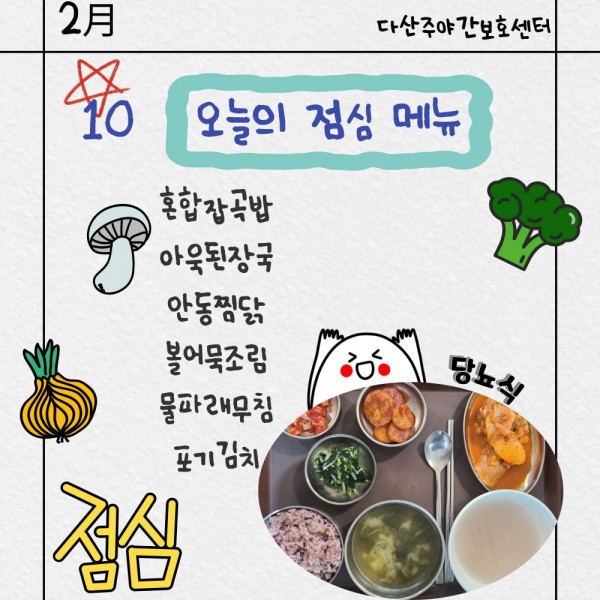 2月
다산주야간보호센터
10
오늘의 점심 메뉴
혼합잡곡밥
아욱된장국
안동찜닭
볼어묵조림
물파래무침
포기김치
당뇨식
점심